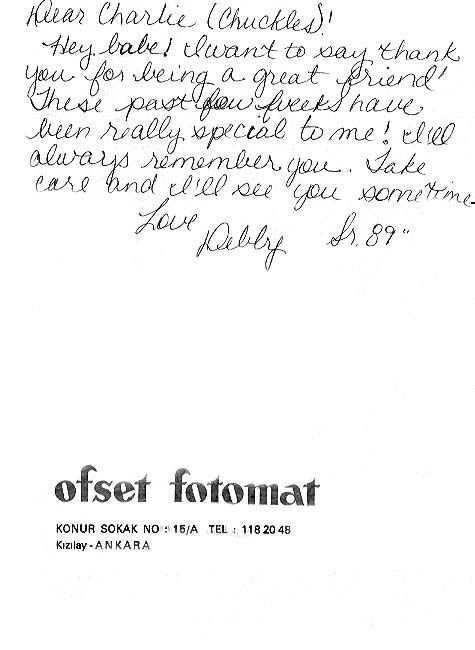 Dear Charlie (Chuckles)!
Hey babe! I want to say thank
you for being a great friend!
These past few weeks have
been really special to me! I'll
always remember you. Take
care and I'll see you sometime.
Love
Debby Sr. 89"
ofset fotomat
KONUR SOKAK NO : 15/A TEL : 118 20 48
Kızılay - ANKARA